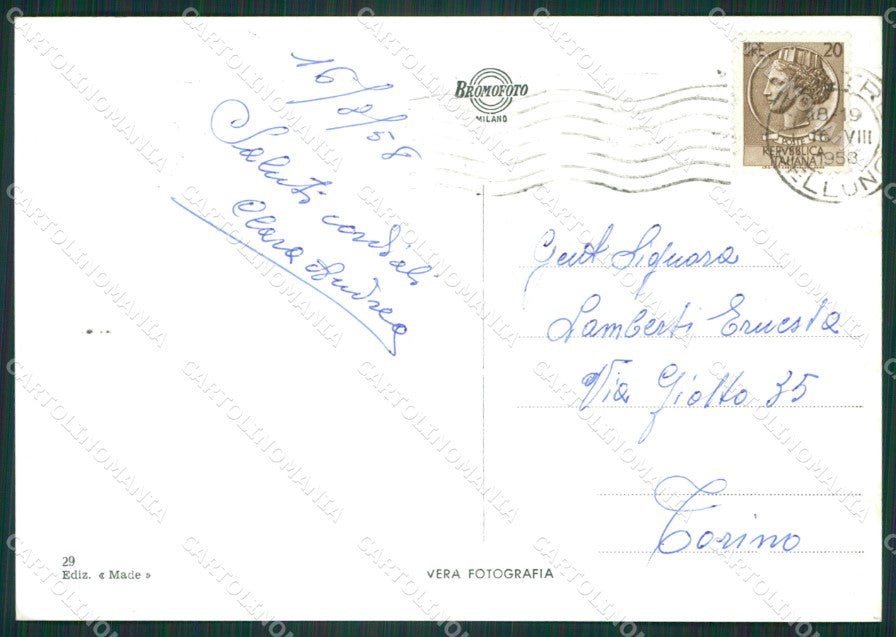 16/8/58
Saluti cordiali
Clara Andrea
BROMOFOTO
MILANO
LIRE 20
REPVBBLICA
ITALIANA
18-19
16 VIII
1958
Gent Signora
Lamberti Ernesta
Via Giotto 35
Torino
29
Ediz. « Made »
VERA FOTOGRAFIA
CARTOLINOMANIA